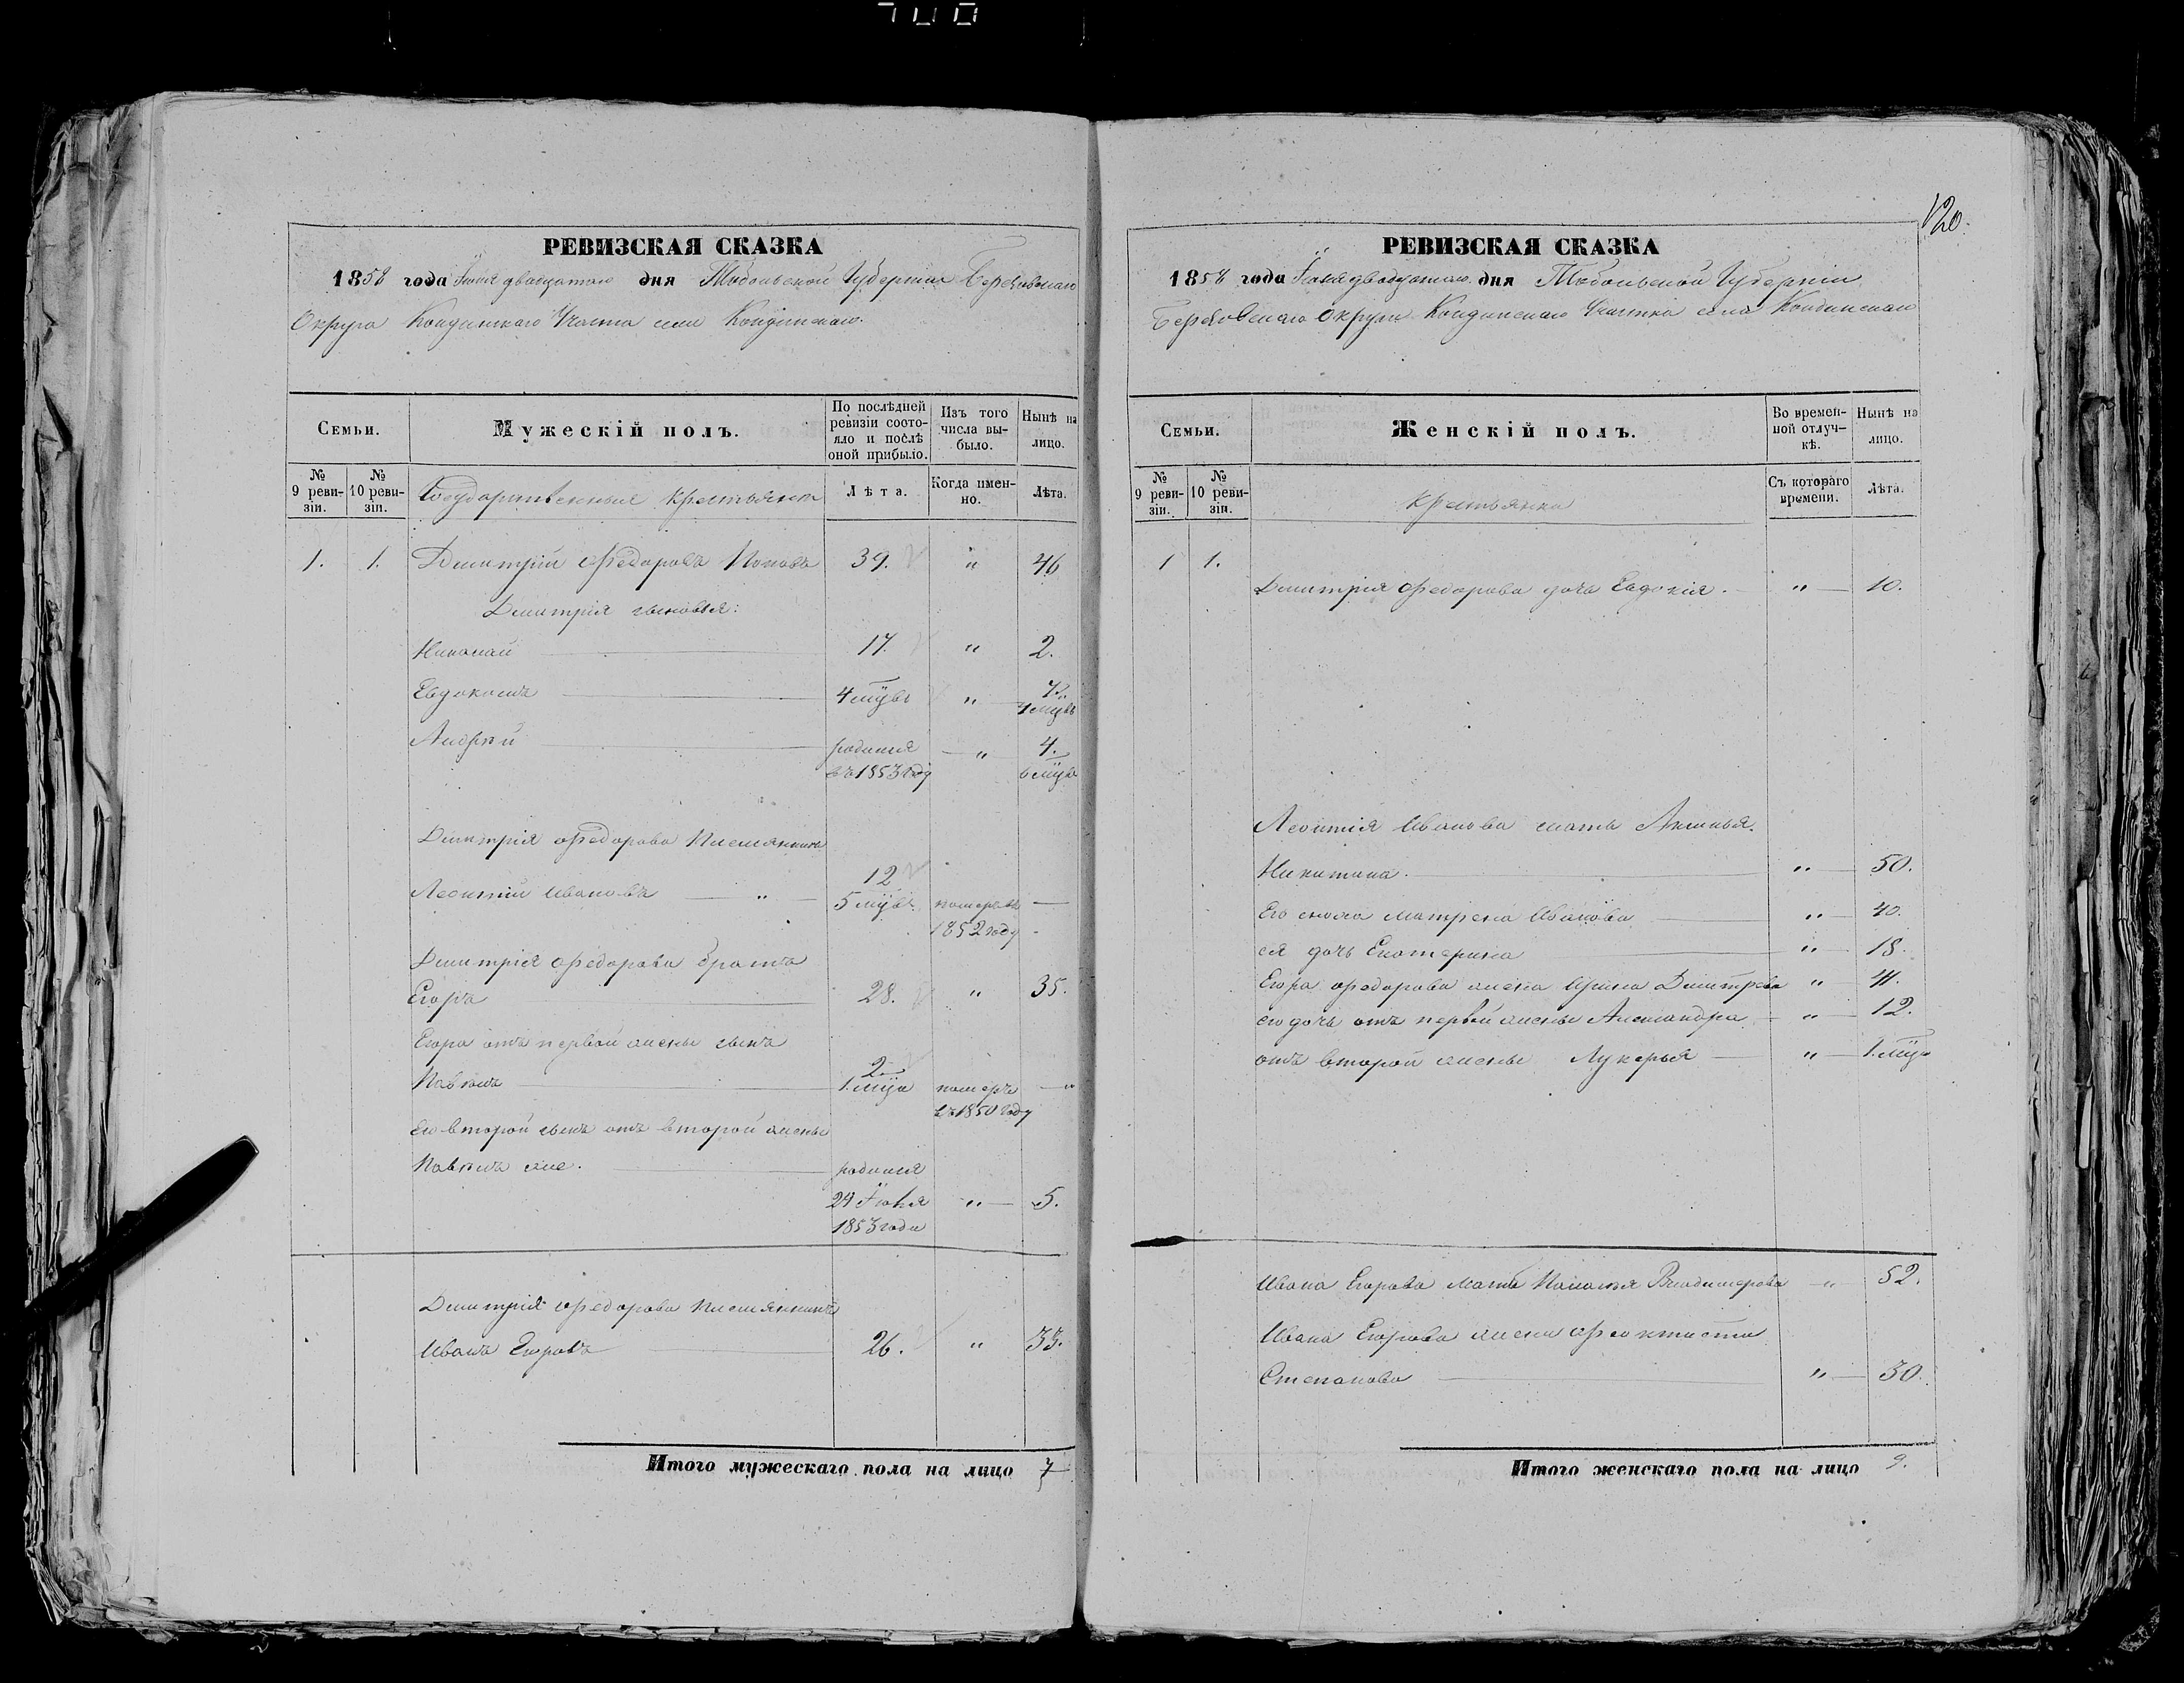 700
РЕВИЗСКАЯ СКАЗКА
1858 года Іюня двадцатаго дня Тобольской Губерніи Березовскаго
Округа Кондинскаго Участка села Кондинскаго.
Семьи.
Мужескій полъ.
По послѣдней ревизіи состояло и послѣ оной прибыло.
Изъ того числа выбыло.
Нынѣ на лицо.
№ 9 ревизіи.
№ 10 ревизіи.
Государственныя Крестьяна
Лѣта.
Когда именно.
Лѣта.
1. 1. Дмитрій Ѳедоровъ Поповъ 39. " 46
Дмитрія сыновья:
Николай 17. " 2.
Евдокимъ 4 мцвъ " 7. 4 мцвъ
Андрей родился въ 1853 году " 4. 6 мцвъ
Дмитрія Ѳедорова Племянникъ
Леонтій Ивановъ " 12 5 мцвъ померъ въ 1852 году
Дмитрія Ѳедорова братъ
Егоръ 28. " 35.
Егора отъ первой жены сынъ
Павелъ 2 1 мца померъ въ 1850 году "
Его второй сынъ отъ второй жены
Павелъ же. родился 24 Іюня 1853 года " 5.
Дмитрія Ѳедорова Племянникъ
Иванъ Егоровъ 26. " 33.
Итого мужескаго пола на лицо 7
120.
РЕВИЗСКАЯ СКАЗКА
1858 года Іюня двадцатаго дня Тобольской Губерніи
Березовскаго Округа Кондинскаго Участка села Кондинскаго
Семьи.
Женскій полъ.
Во временной отлучкѣ.
Нынѣ на лицо.
№ 9 ревизіи.
№ 10 ревизіи.
Крестьянка
Съ котораго времени.
Лѣта.
1 1.
Дмитрія Ѳедорова дочь Евдокія. " 10.
Леонтія Иванова мать Аксинья
Никитина. " 50.
Его Матрена Иванова " 40.
ея дочь Екатерина " 18.
Егора Ѳедорова жена Ирина Дмитрева " 41.
его дочь отъ первой жены Александра " 12.
отъ второй жены Лукерья " 1 мца
Ивана Егорова Мать Пелагѣя Владимерова " 52.
Ивана Егорова жена Ѳеоктиста
Степанова " 30.
Итого женскаго пола на лицо 9.